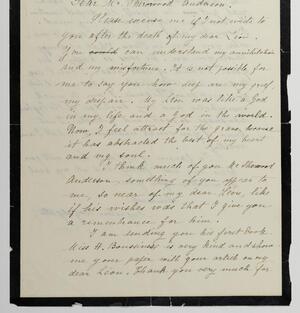 Dear Mr. Sherwood Anderson.
Please excuse me if I not write to
you after the death of my dear Leon.
You can understand my annihilation
and my misfortune. It is not possible for
me to say you how deep are my grief
my despair. My Leon was like a God
in my life and a God in the world.
Now, I feel attract for the grave, because
it has abstracted the best of my heart
and my soul.
I think much of you Mr Sherwood
Anderson. Something of you appear to
me, so near of my dear Leon, like
if his wishes was that I give you
a remembrance for him.
I am sending you his first book
Miss H. is very kind and show
me your paper with your article on my
dear Leon. Thank you very much for